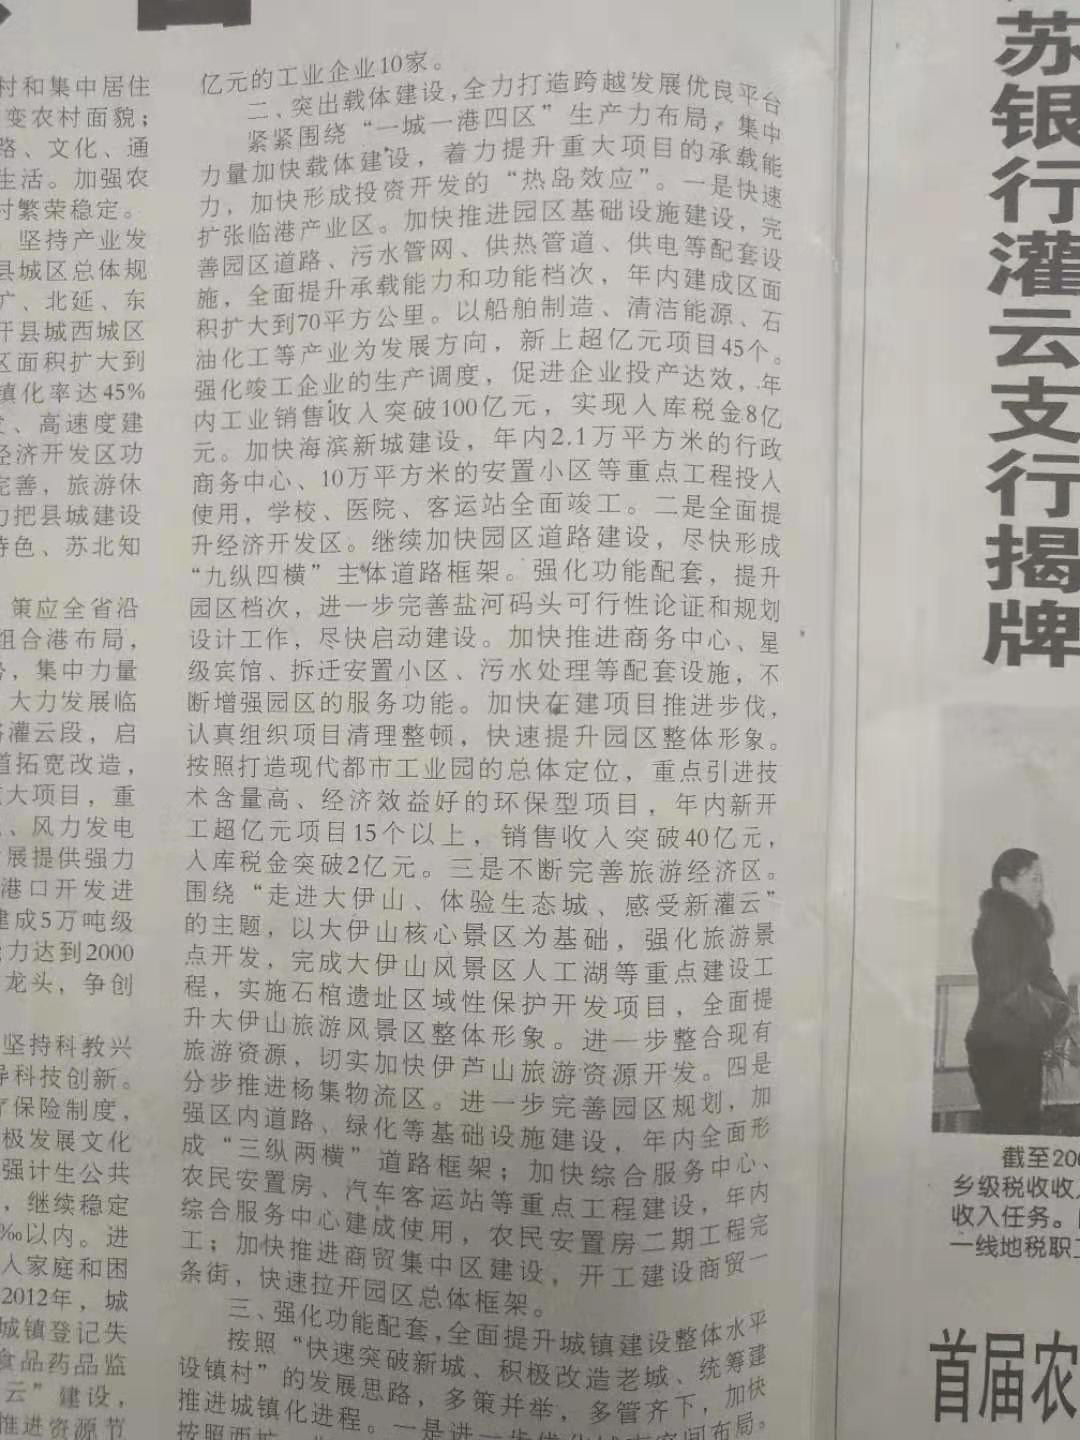 村和集中居住
变农村面貌；
路、文化、通
生活。加强农
村繁荣稳定。
坚持产业发
县城区总体规
扩、北延、东
开县城西城区
区面积扩大到
镇化率达45%
、高速度建
经济开发区功
完善，旅游休
力把县城建设
特色、苏北知
策应全省沿
组合港布局，
势，集中力量
大力发展临
灌云段，启
道拓宽改造，
大项目，重
、风力发电
展提供强力
港口开发进
建成5万吨级
力达到2000
龙头，争创
坚持科教兴
导科技创新。
保险制度，
极发展文化
强计生公共
，继续稳定
‰以内。进
人家庭和困
2012年，城
城镇登记失
食品药品监
云”建设，
推进资源节
亿元的工业企业10家。
二、突出载体建设，全力打造跨越发展优良平台
紧紧围绕“一城一港四区”生产力布局，集中
力量加快载体建设，着力提升重大项目的承载能
力，加快形成投资开发的“热岛效应”。一是快速
扩张临港产业区。加快推进园区基础设施建设，完
善园区道路、污水管网、供热管道、供电等配套设
施，全面提升承载能力和功能档次，年内建成区面
积扩大到70平方公里。以船舶制造、清洁能源、石
油化工等产业为发展方向，新上超亿元项目45个。
强化竣工企业的生产调度，促进企业投产达效，年
内工业销售收入突破100亿元，实现入库税金8亿
元。加快海滨新城建设，年内2.1万平方米的行政
商务中心、10万平方米的安置小区等重点工程投入
使用，学校、医院、客运站全面竣工。二是全面提
升经济开发区。继续加快园区道路建设，尽快形成
“九纵四横”主体道路框架。强化功能配套，提升
园区档次，进一步完善盐河码头可行性论证和规划
设计工作，尽快启动建设。加快推进商务中心、星
级宾馆、拆迁安置小区、污水处理等配套设施，不
断增强园区的服务功能。加快在建项目推进步伐，
认真组织项目清理整顿，快速提升园区整体形象。
按照打造现代都市工业园的总体定位，重点引进技
术含量高、经济效益好的环保型项目，年内新开
工超亿元项目15个以上，销售收入突破40亿元，
入库税金突破2亿元。三是不断完善旅游经济区。
围绕“走进大伊山、体验生态城、感受新灌云”
的主题，以大伊山核心景区为基础，强化旅游景
点开发，完成大伊山风景区人工湖等重点建设工
程，实施石棺遗址区域性保护开发项目，全面提
升大伊山旅游风景区整体形象。进一步整合现有
旅游资源，切实加快伊芦山旅游资源开发。四是
分步推进杨集物流区。进一步完善园区规划，加
强区内道路、绿化等基础设施建设，年内全面形
成“三纵两横”道路框架；加快综合服务中心、
农民安置房、汽车客运站等重点工程建设，年内
综合服务中心建成使用，农民安置房二期工程完
工；加快推进商贸集中区建设，开工建设商贸一
条街，快速拉开园区总体框架。
三、强化功能配套，全面提升城镇建设整体水平
按照“快速突破新城、积极改造老城、统筹建
设镇村”的发展思路，多策并举，多管齐下，加快
推进城镇化进程。一是进一步优化城市空间布局。
按照西扩、
苏银行灌云支行揭牌
截至200
乡级税收收入
收入任务。
一线地税职工
首届农